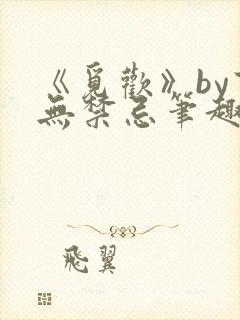 《覓歡》by
無禁忌筆趣
飛翼